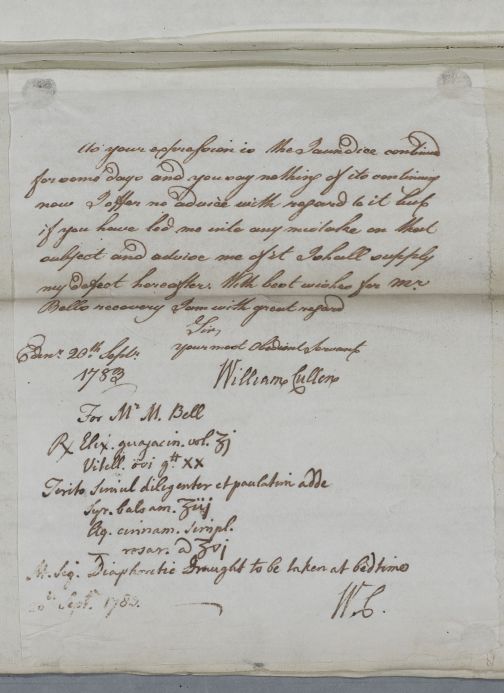 As your expression is the Jaundice continued
for some days and you say nothing of its continuing
now I offer no advice with regard to it but
if you have led me into any mistake on that
subject and advise me of it I shall supply
my defect hereafter. With best wishes for Mr
Bells recovery I am with great regard
Sir,
Your most Obedient Servant
Edinr. 20th Septr.
1783
William Cullen
For Mr M. Bell
℞ Elix. guajacin. vol. ʒj
Vitell. ovi gtt XX
Terito simul diligenter et paulatim adde
Syr. balsam. ʒiij
Aq. cinnam. simpl.
rosar. a ʒvj
M. Sig. Diaphoretic Draught to be taken at bedtime
20th Septr. 1783.
W. C.